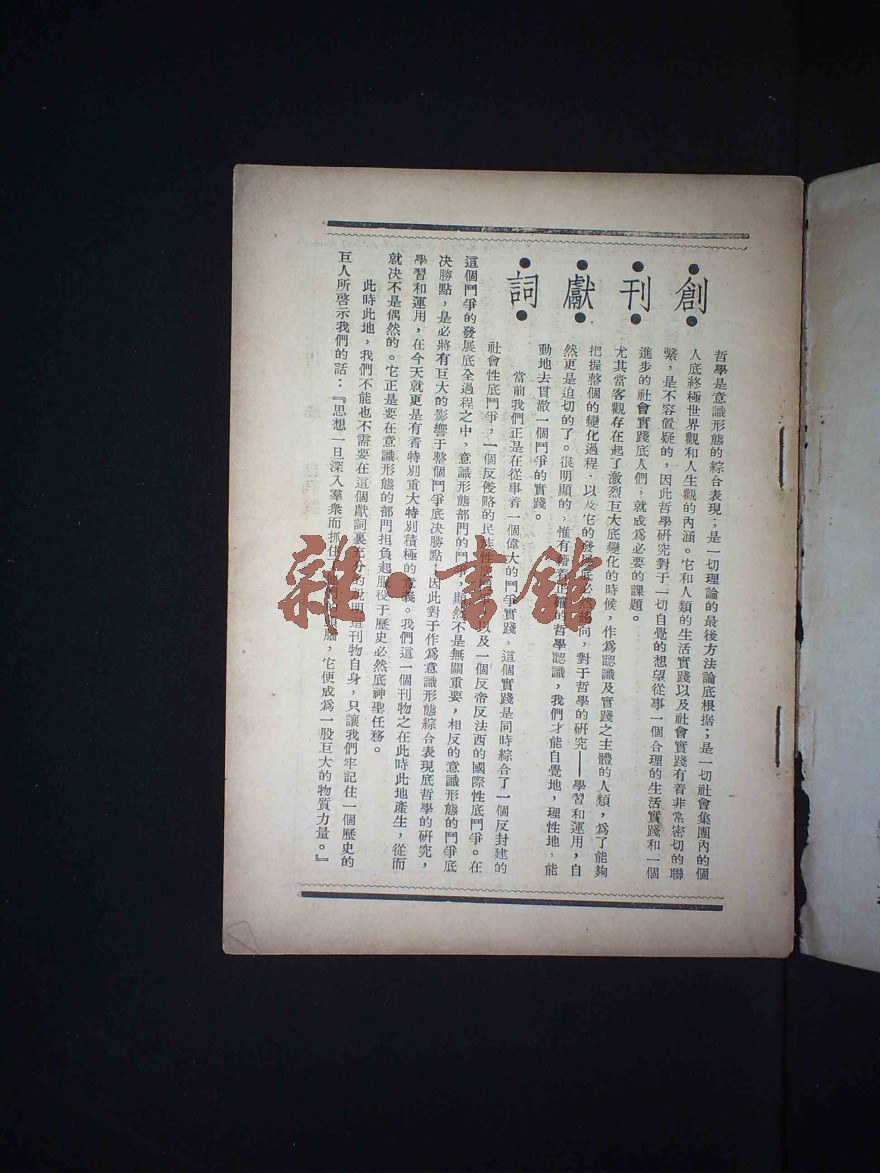 創刊獻詞
哲學是意識形態的綜合表現；是一切理論的最後方法論底根据；是一切社會集團內的個
人底終極世界觀和人生觀的內涵。它和人類的生活實踐以及社會實踐有着非常密切的聯
繫，是不容置疑的，因此哲學研究對于一切自覺的想望從事一個合理的生活實踐和一個
進步的社會實踐底人們，就成爲必要的課題。
尤其當客觀存在起了激烈巨大底變化的時候，作爲認識及實踐之主體的人類，爲了能夠
把握整個的變化過程，以及它的發展底必然趨向，對于哲學的研究——學習和運用，自
然更是迫切的了。很明顯的，惟有藉着正確的哲學認識，我們才能自覺地，理性地，能
動地去貫澈一個鬥爭的實踐。
當前我們正是在從事着一個偉大的鬥爭實踐，這個實踐是同時綜合了一個反封建的
社會性底鬥爭，一個反侵略的民族性底以及一個反帝反法西的國際性底鬥爭。在
這個鬥爭的發展底全過程之中，意識形態部門的鬥爭，顯然不是無關重要，相反的意識形態的鬥爭底
決勝點，是必將有巨大的影響于整個鬥爭底決勝點；因此對于作爲意識形態綜合表現底哲學的研究，
學習和運用，在今天就更是有着特別重大特別積極的意義。我們這一個刊物之在此時此地產生，從而
就決不是偶然的。它正是要在意識形態的部門担負起服役于歷史必然底神聖任務。
此時此地，我們不能也不需要在這個獻詞裏充分的說明這刊物自身，只讓我們牢記住一個歷史的
巨人所啓示我們的話：『思想一旦深入羣衆而抓住，它便成爲一股巨大的物質力量。』
雜·書館